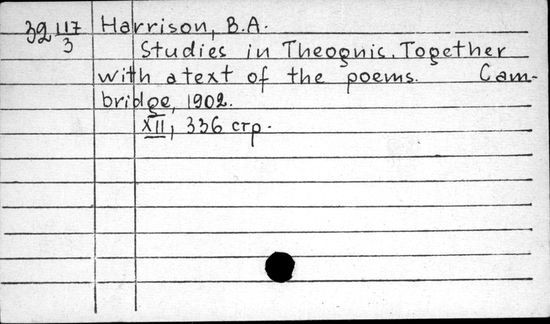 39 117/3 Harrison, B.A.
Studies in Theognis. Together
with a text of the poems. Cam-
bridge, 1902.
XII, 336 стр.